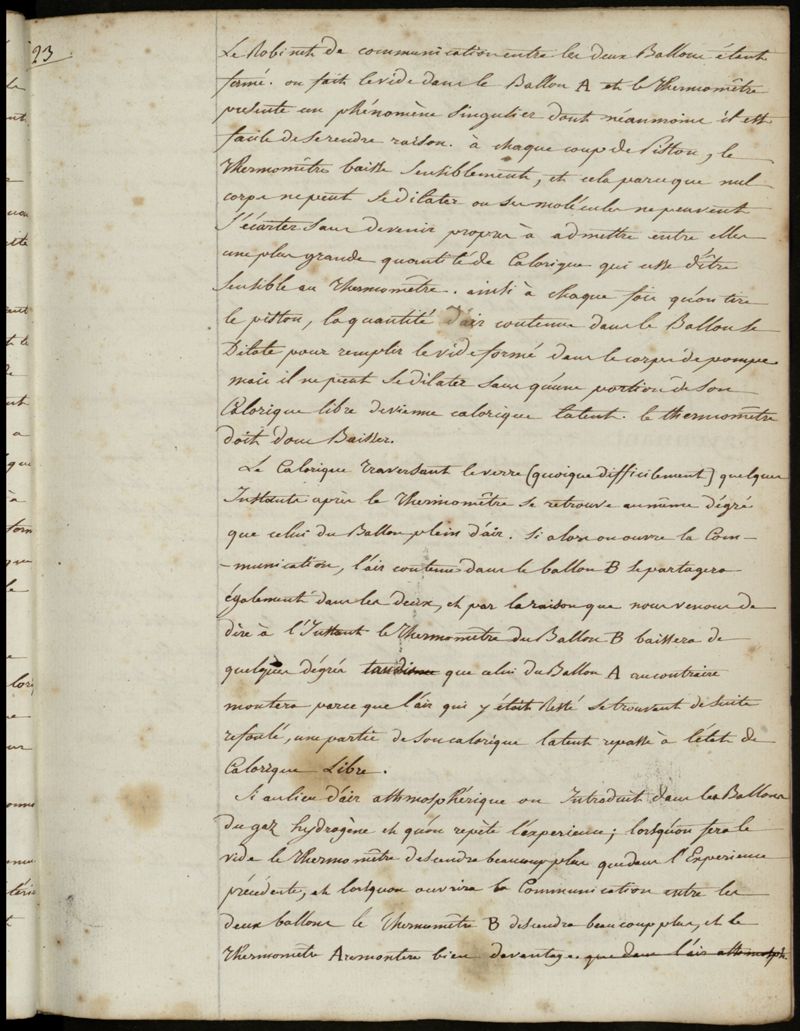 23
Le Robinet de communication entre les deux Ballons étant
fermé. on fait le vide dans le Ballon A et le Thermomètre
présente un phénomène singulier dont néanmoins il est
facile de se rendre raison. à chaque coup de Piston, le
Thermomètre baisse sensiblement, et cela parceque nul
corps ne peut se dilater ou ses molécules ne peuvent
s'écarter sans devenir propres à admettre entre elles
une plus grande quantité de Calorique qui cesse d'être
sensible au Thermomètre. ainsi à chaque fois qu'on tire
le piston, la quantité d'air contenue dans le Ballon se
Dilate pour remplir le vide formé dans le corps de pompe
mais il ne peut se dilater sans qu'une portion de son
Calorique libre devienne calorique latent. le thermomètre
doit donc Baisser.
Le Calorique traversant le verre (quoique difficilement) quelques
Instants après le Thermomètre se retrouve au même dégré
que celui du Ballon plein d'air. Si alors on ouvre la Com-
-munication, l'air contenu dans le ballon B se partagera
également dans les deux, et par la raison que nous venons de
dire à l'Instant le Thermomètre du Ballon B baissera de
quelques dégrés tandisque que celui du Ballon A au contraire
montera parce que l'air qui y était Resté se trouvant de suite
refoulé, une partie de son calorique latent repasse à l'état de
Calorique Libre.
Si au lieu d'air athmosphérique on Introduit dans les Ballons
Du gaz hydrogène et qu'on repète l'experience; lorsqu'on fera le
vide le Thermomètre descendra beaucoup plus que dans l'Experience
précédente, et lorsquon ouvrira la Communication entre les
deux ballons le Thermomètre B descendra beaucoup plus, et le
Thermomètre A remontera bien davantage. que dans l'air athmosph.